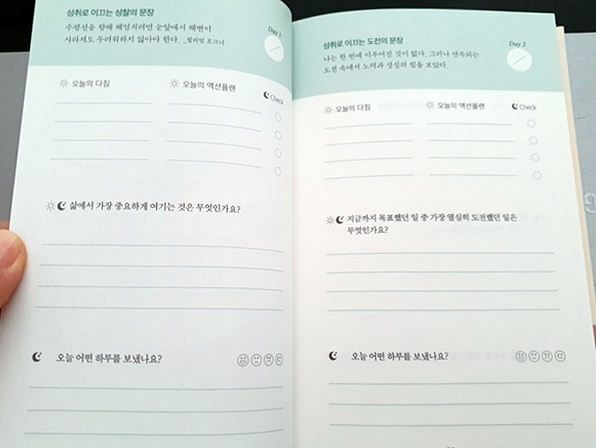 성취로 이끄는 성찰의 문장
수평선을 향해 헤엄치려면 눈앞에서 해변이
사라져도 두려워하지 않아야 한다. _윌리엄 포크너
Day 1
오늘의 다짐
오늘의 액션플랜
Check
삶에서 가장 중요하게 여기는 것은 무엇인가요?
오늘 어떤 하루를 보냈나요?
성취로 이끄는 도전의 문장
나는 한 번에 이루어진 것이 없다. 그러나 연속되는
도전 속에서 노력과 성실의 힘을 보았다.
Day 2
오늘의 다짐
오늘의 액션플랜
Check
지금까지 목표했던 일 중 가장 열심히 도전했던 일은
무엇인가요?
오늘 어떤 하루를 보냈나요?